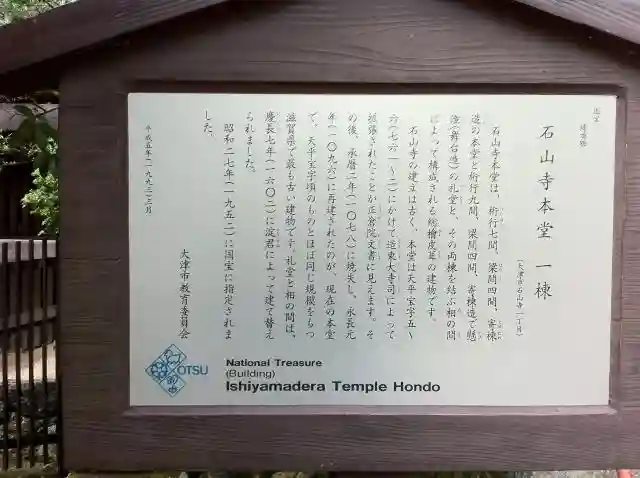 国宝
建造物
石山寺本堂 一棟
(大津市石山寺一丁目)
石山寺本堂は、桁行七間、梁間四間、寄棟
造の本堂と桁行九間、梁間四間、寄棟造で懸
造(舞台造)の礼堂と、その両棟を結ぶ相の間
によって構成される総檜皮葺の建物です。
石山寺の建立は古く、本堂は天平宝字五〜
六(七六一〜二)にかけて造東大寺司によって
拡張されたことが正倉院文書に見えます。そ
の後、承暦二年(一〇七八)に焼失し、永長元
年(一〇九六)に再建されたのが、現在の本堂
で、天平宝字頃のものとほぼ同じ規模をもつ
滋賀県で最も古い建物です。礼堂と相の間は、
慶長七年(一六〇二)に淀君によって建て替え
られました。
昭和二七年(一九五二)に国宝に指定されま
した。
大津市教育委員会
平成五年(一九九三)三月
OTSU
National Treasure
(Building)
Ishiyamadera Temple Hondo